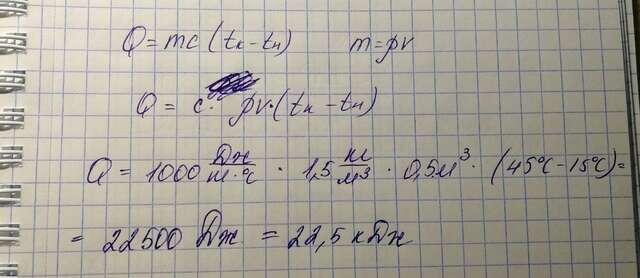 Q = mc (tк - tн)   m = ρv
Q = c · ρv · (tк - tн)
Q = 1000 Дж/кг·°C · 1,5 кг/м³ · 0,5м³ · (45°C - 15°C) =
= 22500 Дж = 22,5 кДж